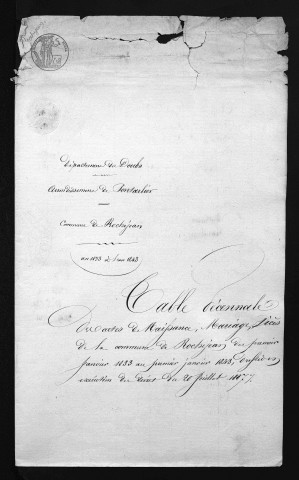 Département du Doubs
Arrondissement de Pontarlier
Commune de Rochejean
an 1833 à l'an 1843
Table décennale
Des actes de Naissance, Mariage, Décès
de la commune de Rochejean, du premier
Janvier 1833 au premier janvier 1843, en
exécution du décret du 20 Juillet 1807